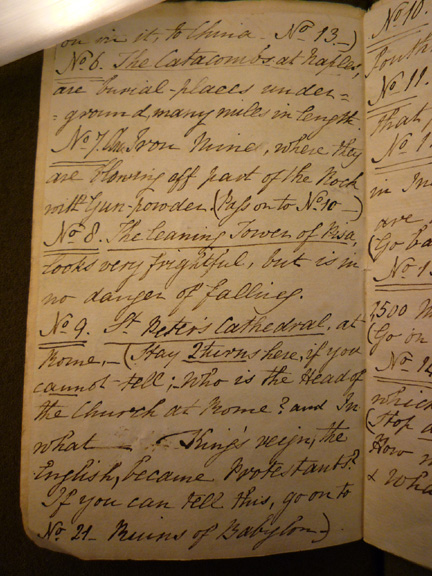 on in it, to China. No 13.-)
No 6. The Catacombs at Naples,
are burial-places under=
=ground, many miles in length.
No 7. An Iron Mine, where they
are blowing off part of the Rock
with Gun-powder. (Pass on to No 10.-)
No 8. The leaning Tower of Pisa,
looks very frightful, but is in
no danger of falling.
No 9. St Peter's Cathedral, at
Rome,- (Stay 2 turns here, if you
cannot tell; Who is the Head of
the Church at Rome? and In
what King's reign, the
English, became Protestants?
If you can tell this, go on to
No 21- Ruins of Babylon)
No 10.
South
No 11.
that
No 1
in In
are
(Go ba
No 1
2500 M
(Go on
No 12
which
(Stop a
How m
& Wha